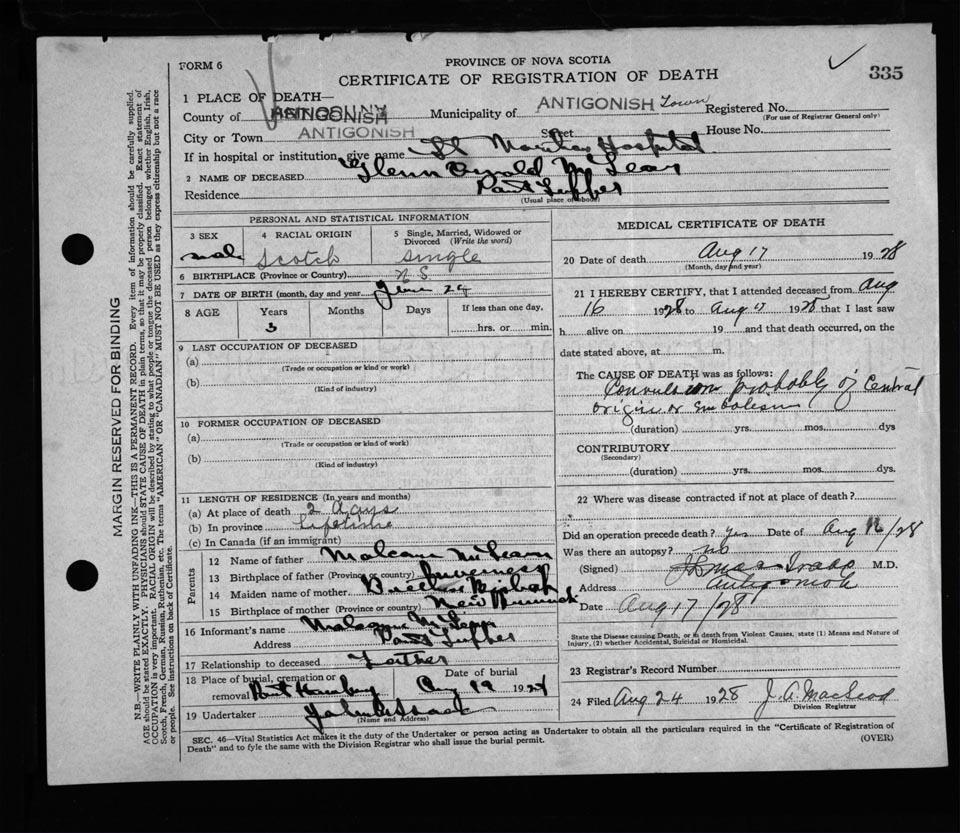 FORM 6
PROVINCE OF NOVA SCOTIA
CERTIFICATE OF REGISTRATION OF DEATH
335
1 PLACE OF DEATH—
County of ANTIGONISH
Municipality of ANTIGONISH Town
Registered No.
(For use of Registrar General only)
City or Town ANTIGONISH Street House No.
If in hospital or institution, give name St Hospital
2 NAME OF DECEASED Glenn
Residence Port
(Usual place of abode)
PERSONAL AND STATISTICAL INFORMATION
3 SEX
male
4 RACIAL ORIGIN
Scotch
5 Single, Married, Widowed or Divorced (Write the word)
single
6 BIRTHPLACE (Province or Country) N S
7 DATE OF BIRTH (month, day and year) 24
8 AGE Years Months Days If less than one day,
3 hrs. or min.
9 LAST OCCUPATION OF DECEASED
(a)
(Trade or occupation or kind or work)
(b)
(Kind of industry)
10 FORMER OCCUPATION OF DECEASED
(a)
(Trade or occupation or kind or work)
(b)
(Kind of industry)
11 LENGTH OF RESIDENCE (In years and months)
(a) At place of death 2 days
(b) In province lifetime
(c) In Canada (if an immigrant)
Parents
12 Name of father
13 Birthplace of father (Province or country) Inverness
14 Maiden name of mother
15 Birthplace of mother (Province or country) New
16 Informant's name
Address Port
17 Relationship to deceased Father
18 Place of burial, cremation or removal Port
Date of burial
Aug 19 19
19 Undertaker John
(Name and Address)
MEDICAL CERTIFICATE OF DEATH
20 Date of death Aug 17 1928
(Month, day and year)
21 I HEREBY CERTIFY, that I attended deceased from Aug
16 1928 to Aug 17 1928 that I last saw
h alive on 19 and that death occurred, on the
date stated above, at m.
The CAUSE OF DEATH was as follows:
Convulsion probably of Central
origin or
(duration) yrs. mos. dys
CONTRIBUTORY
(Secondary)
(duration) yrs. mos. dys.
22 Where was disease contracted if not at place of death?
Did an operation precede death? yes Date of Aug 16/28
Was there an autopsy? no
(Signed) M.D.
Address Antigonish
Date Aug 17/28
State the Disease causing Death, or in death from Violent Causes, state (1) Means and Nature of
Injury, (2) whether Accidental, Suicidal or Homicidal.
23 Registrar's Record Number
24 Filed Aug 24 1928 J. A. MacLeod
Division Registrar
SEC. 46—Vital Statistics Act makes it the duty of the Undertaker or person acting as Undertaker to obtain all the particulars required in the "Certificate of Registration of
Death" and to fyle the same with the Division Registrar who shall issue the burial permit.
(OVER)
MARGIN RESERVED FOR BINDING
N.B.—WRITE PLAINLY WITH UNFADING INK—THIS IS A PERMANENT RECORD. Every item of information should be carefully supplied.
AGE should be stated EXACTLY. PHYSICIANS should STATE CAUSE OF DEATH in plain terms, so that it may be properly classified. Exact statement of
OCCUPATION is very important. RACIAL ORIGIN will be described by stating to what people or tongue the deceased person belonged whether English, Irish,
Scotch, French, German, Russian, Ruthenian, etc. The terms "AMERICAN" OR "CANADIAN" MUST NOT BE USED as they express citizenship but not a race
or people. See instructions on back of Certificate.